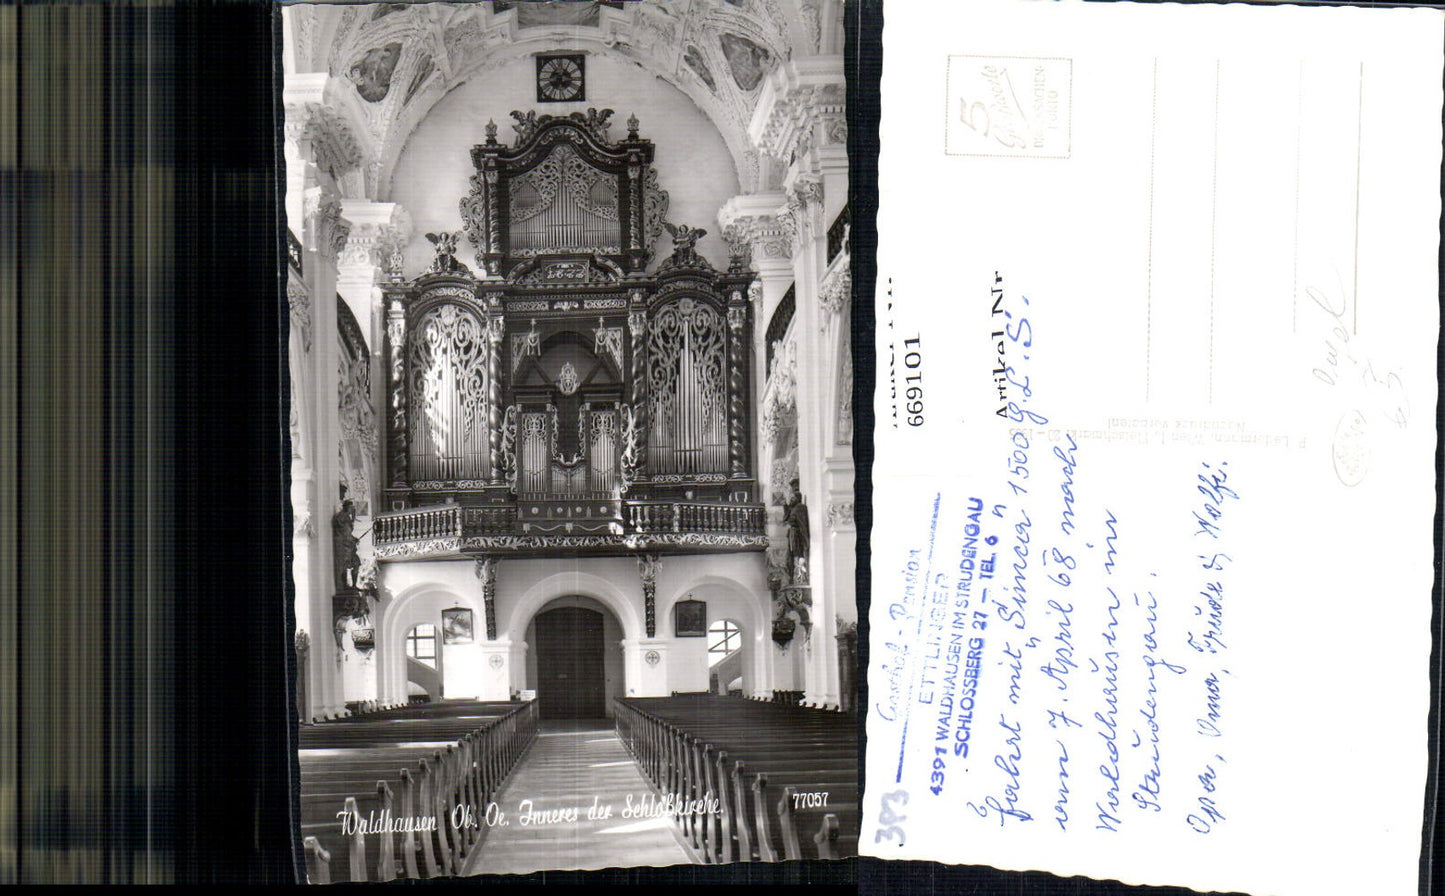 Waldhausen Ob. Oe. Inneres der Schloßkirche.
77057
Artikel Nr.
669101
Artikel Nr
Gasthof - Pension
ETTLINGER
4391 WALDHAUSEN IM STRUDENGAU
SCHLOSSBERG 27 — TEL. 6
383
fahrt mit "Simca 1500 G.L.S."
am 7. April 68 nach
Waldhausen im
Strudengau.
Opa, Oma, Trude & Wolfi.
5
Groschen
DRUCKSACHEN-
PORTO
P. Ledermann, Wien I, Fleischmarkt 20 - 1965
Nachdruck verboten!